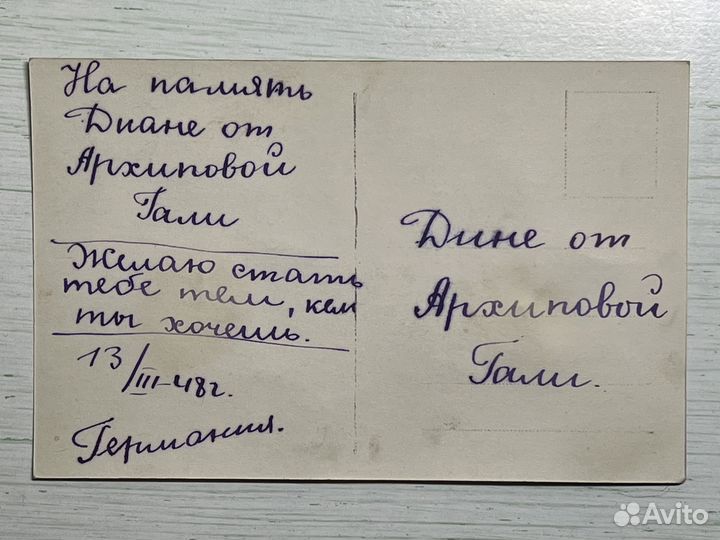 На память
Диане от
Архиповой
Гали
Желаю стать
тебе тем, кем
ты хочешь.
13/III-48г.
Германия.
Дине от
Архиповой
Гали.
Avito